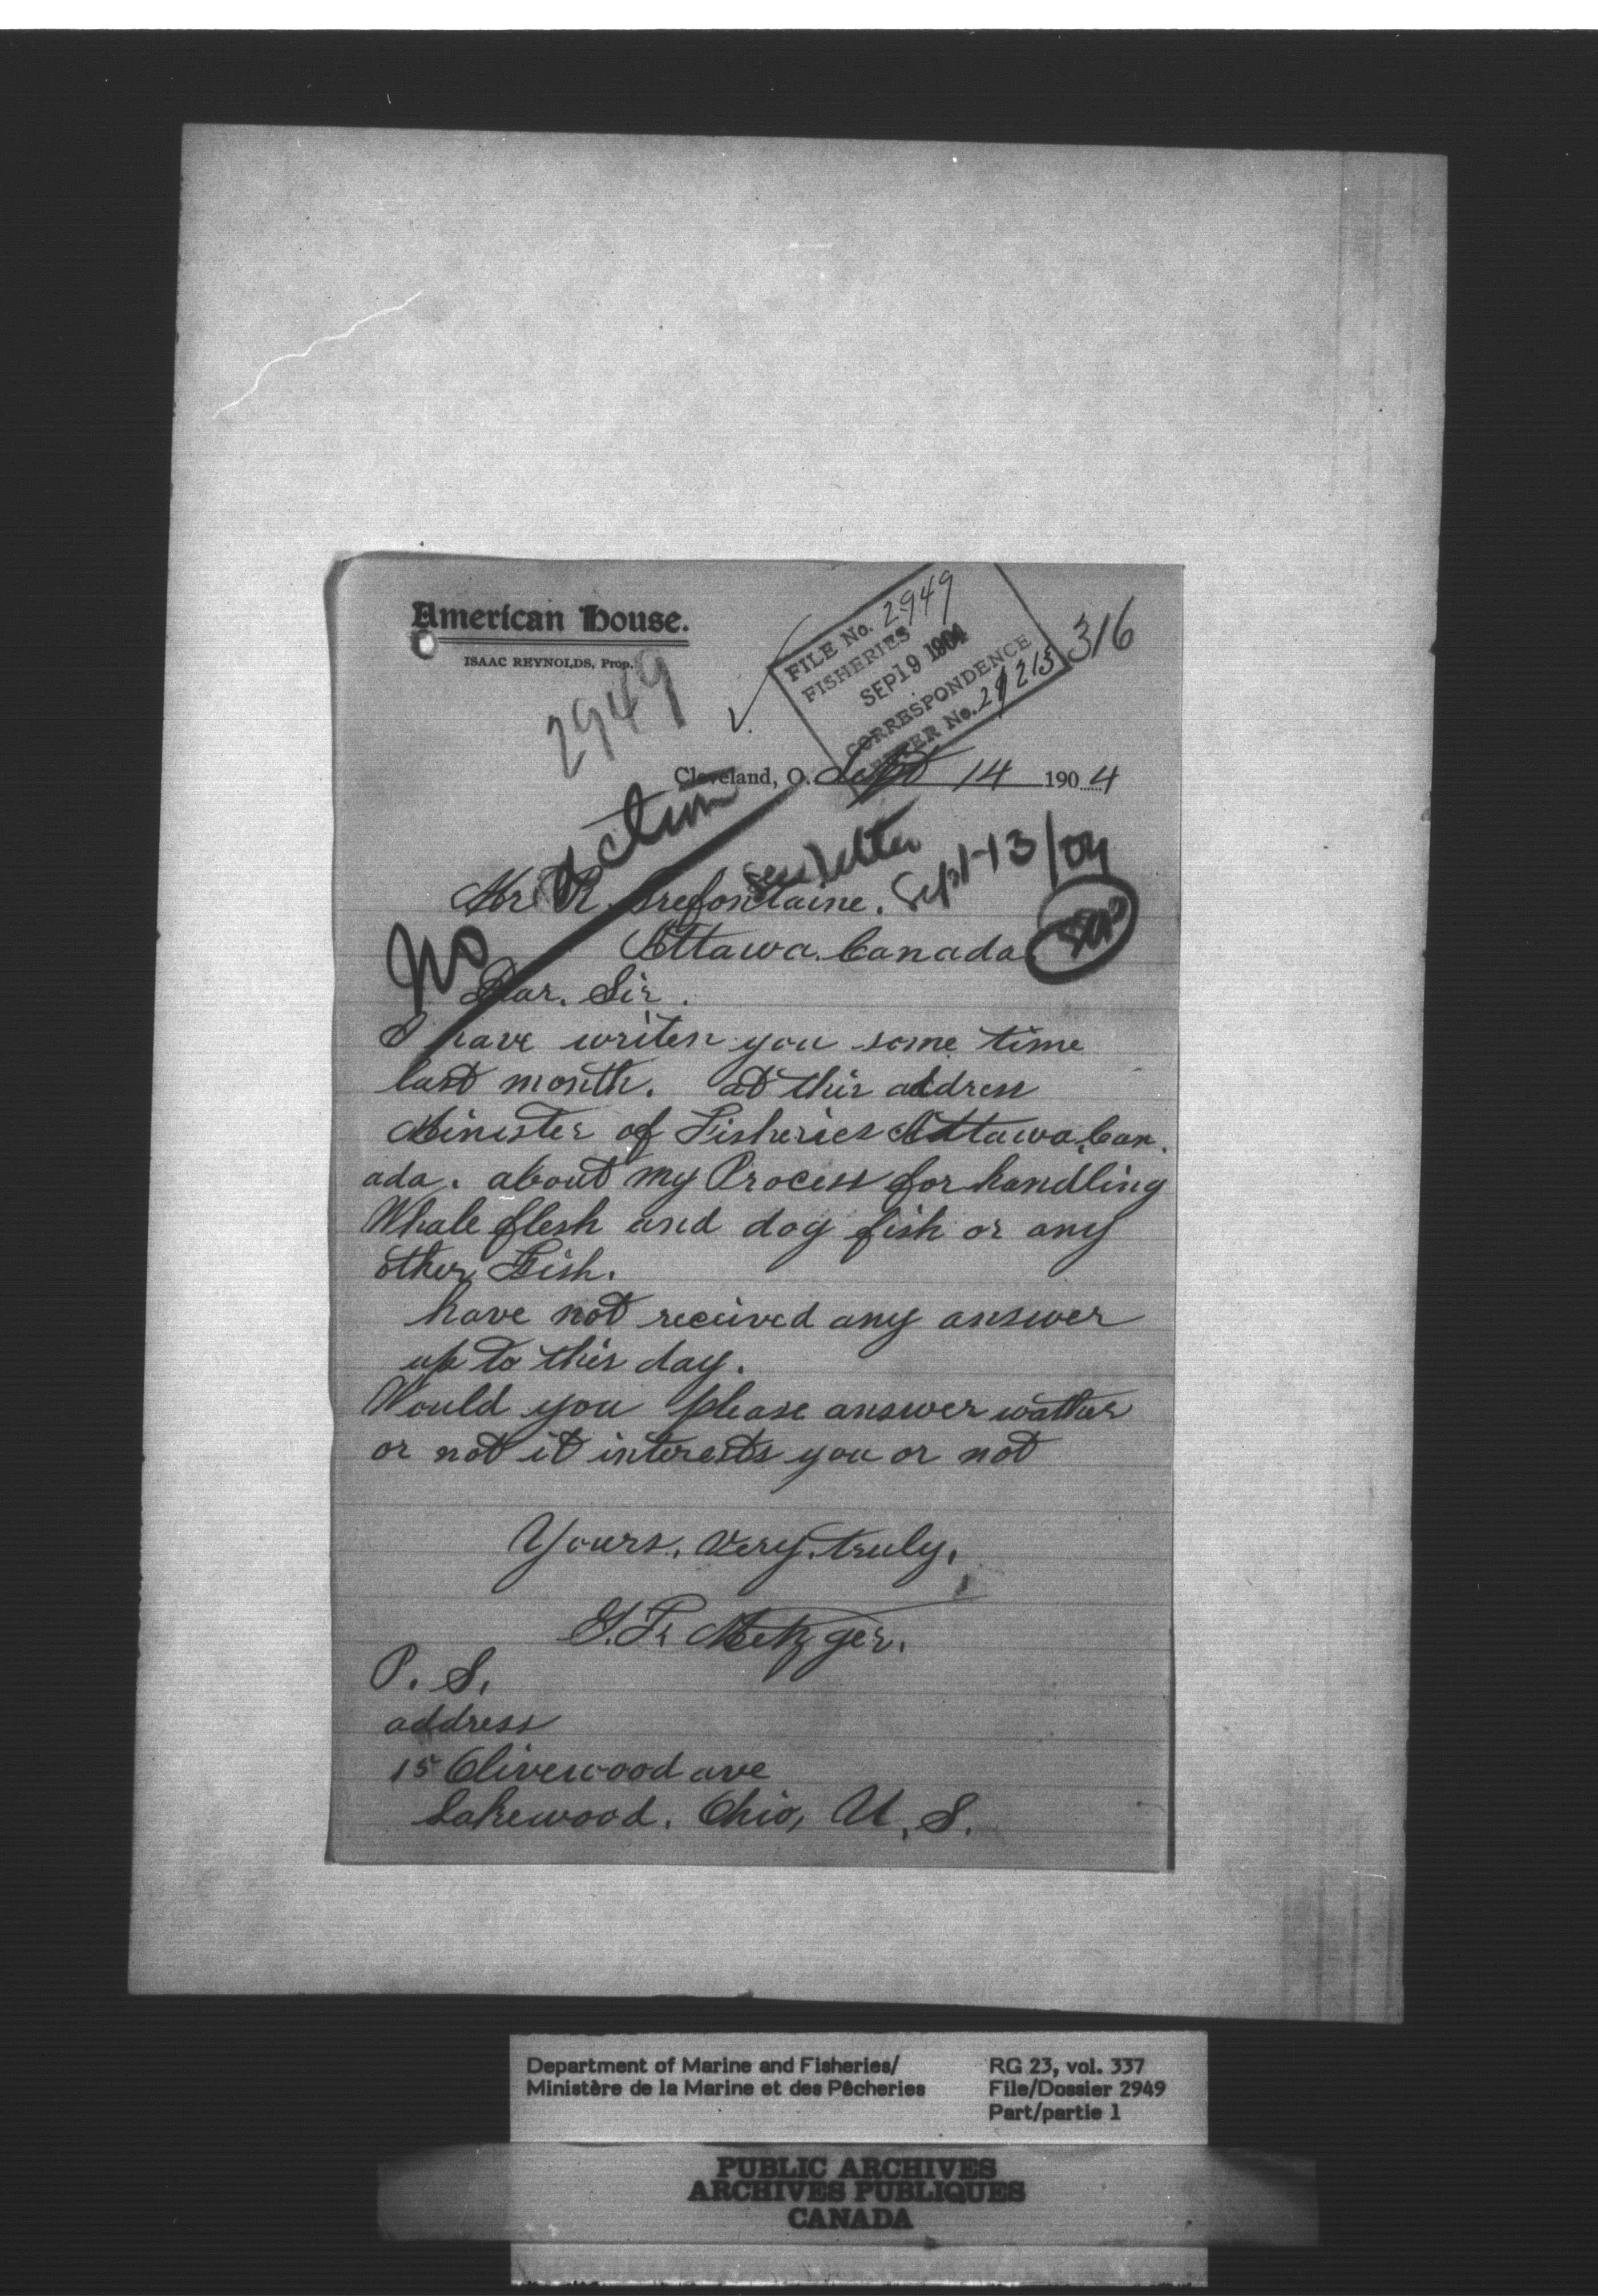 American House.
ISAAC REYNOLDS, Prop.
2949
FILE No. 2949
FISHERIES
SEP 19 1904
CORRESPONDENCE
LETTER No. 29215
316
Cleveland, O. Sept 14 1904
No action
see letter
Sept-13/04
Mr R. Prefontaine.
Ottawa. Canada
Dear. Sir.
I have writen you some time
last month. at this address
Minister of Fisheries Ottawa, Can.
ada. about my Process for handling
Whale flesh and dog fish or any
other Fish.
have not received any answer
up to this day.
Would you please answer wather
or not it interests you or not
Yours, Very, truly,
Metzger.
P. S.
address
15 Olivewood ave
Lakewood. Ohio, U. S.
Department of Marine and Fisheries/
Ministère de la Marine et des Pêcheries
RG 23, vol. 337
File/Dossier 2949
Part/partie 1
PUBLIC ARCHIVES
ARCHIVES PUBLIQUES
CANADA